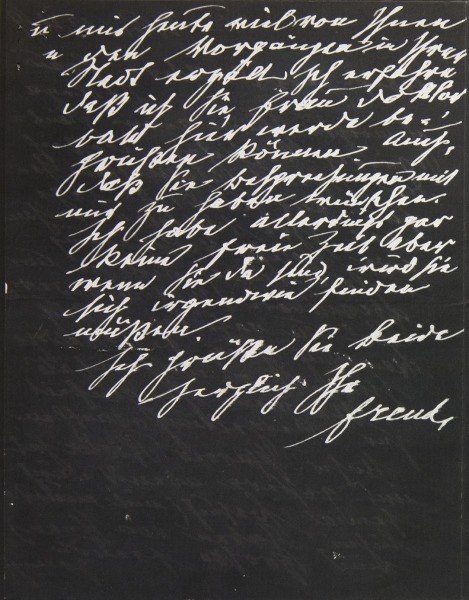 u mir heute viel von Ihnen
u den Vorgängen in Ihrer
Stadt erzählt. Ich erfahre
daß ich Sie, Frau Doktor
bald hier werde be-
grüßen können. Auch,
daß Sie Besprechungen mit
mir zu haben wünschen.
Ich habe allerdings gar
keine freie Zeit aber
wenn Sie da sind, wird sie
sich irgendwie finden
müßen
Ich grüße Sie beide
herzlich Ihr
Freud